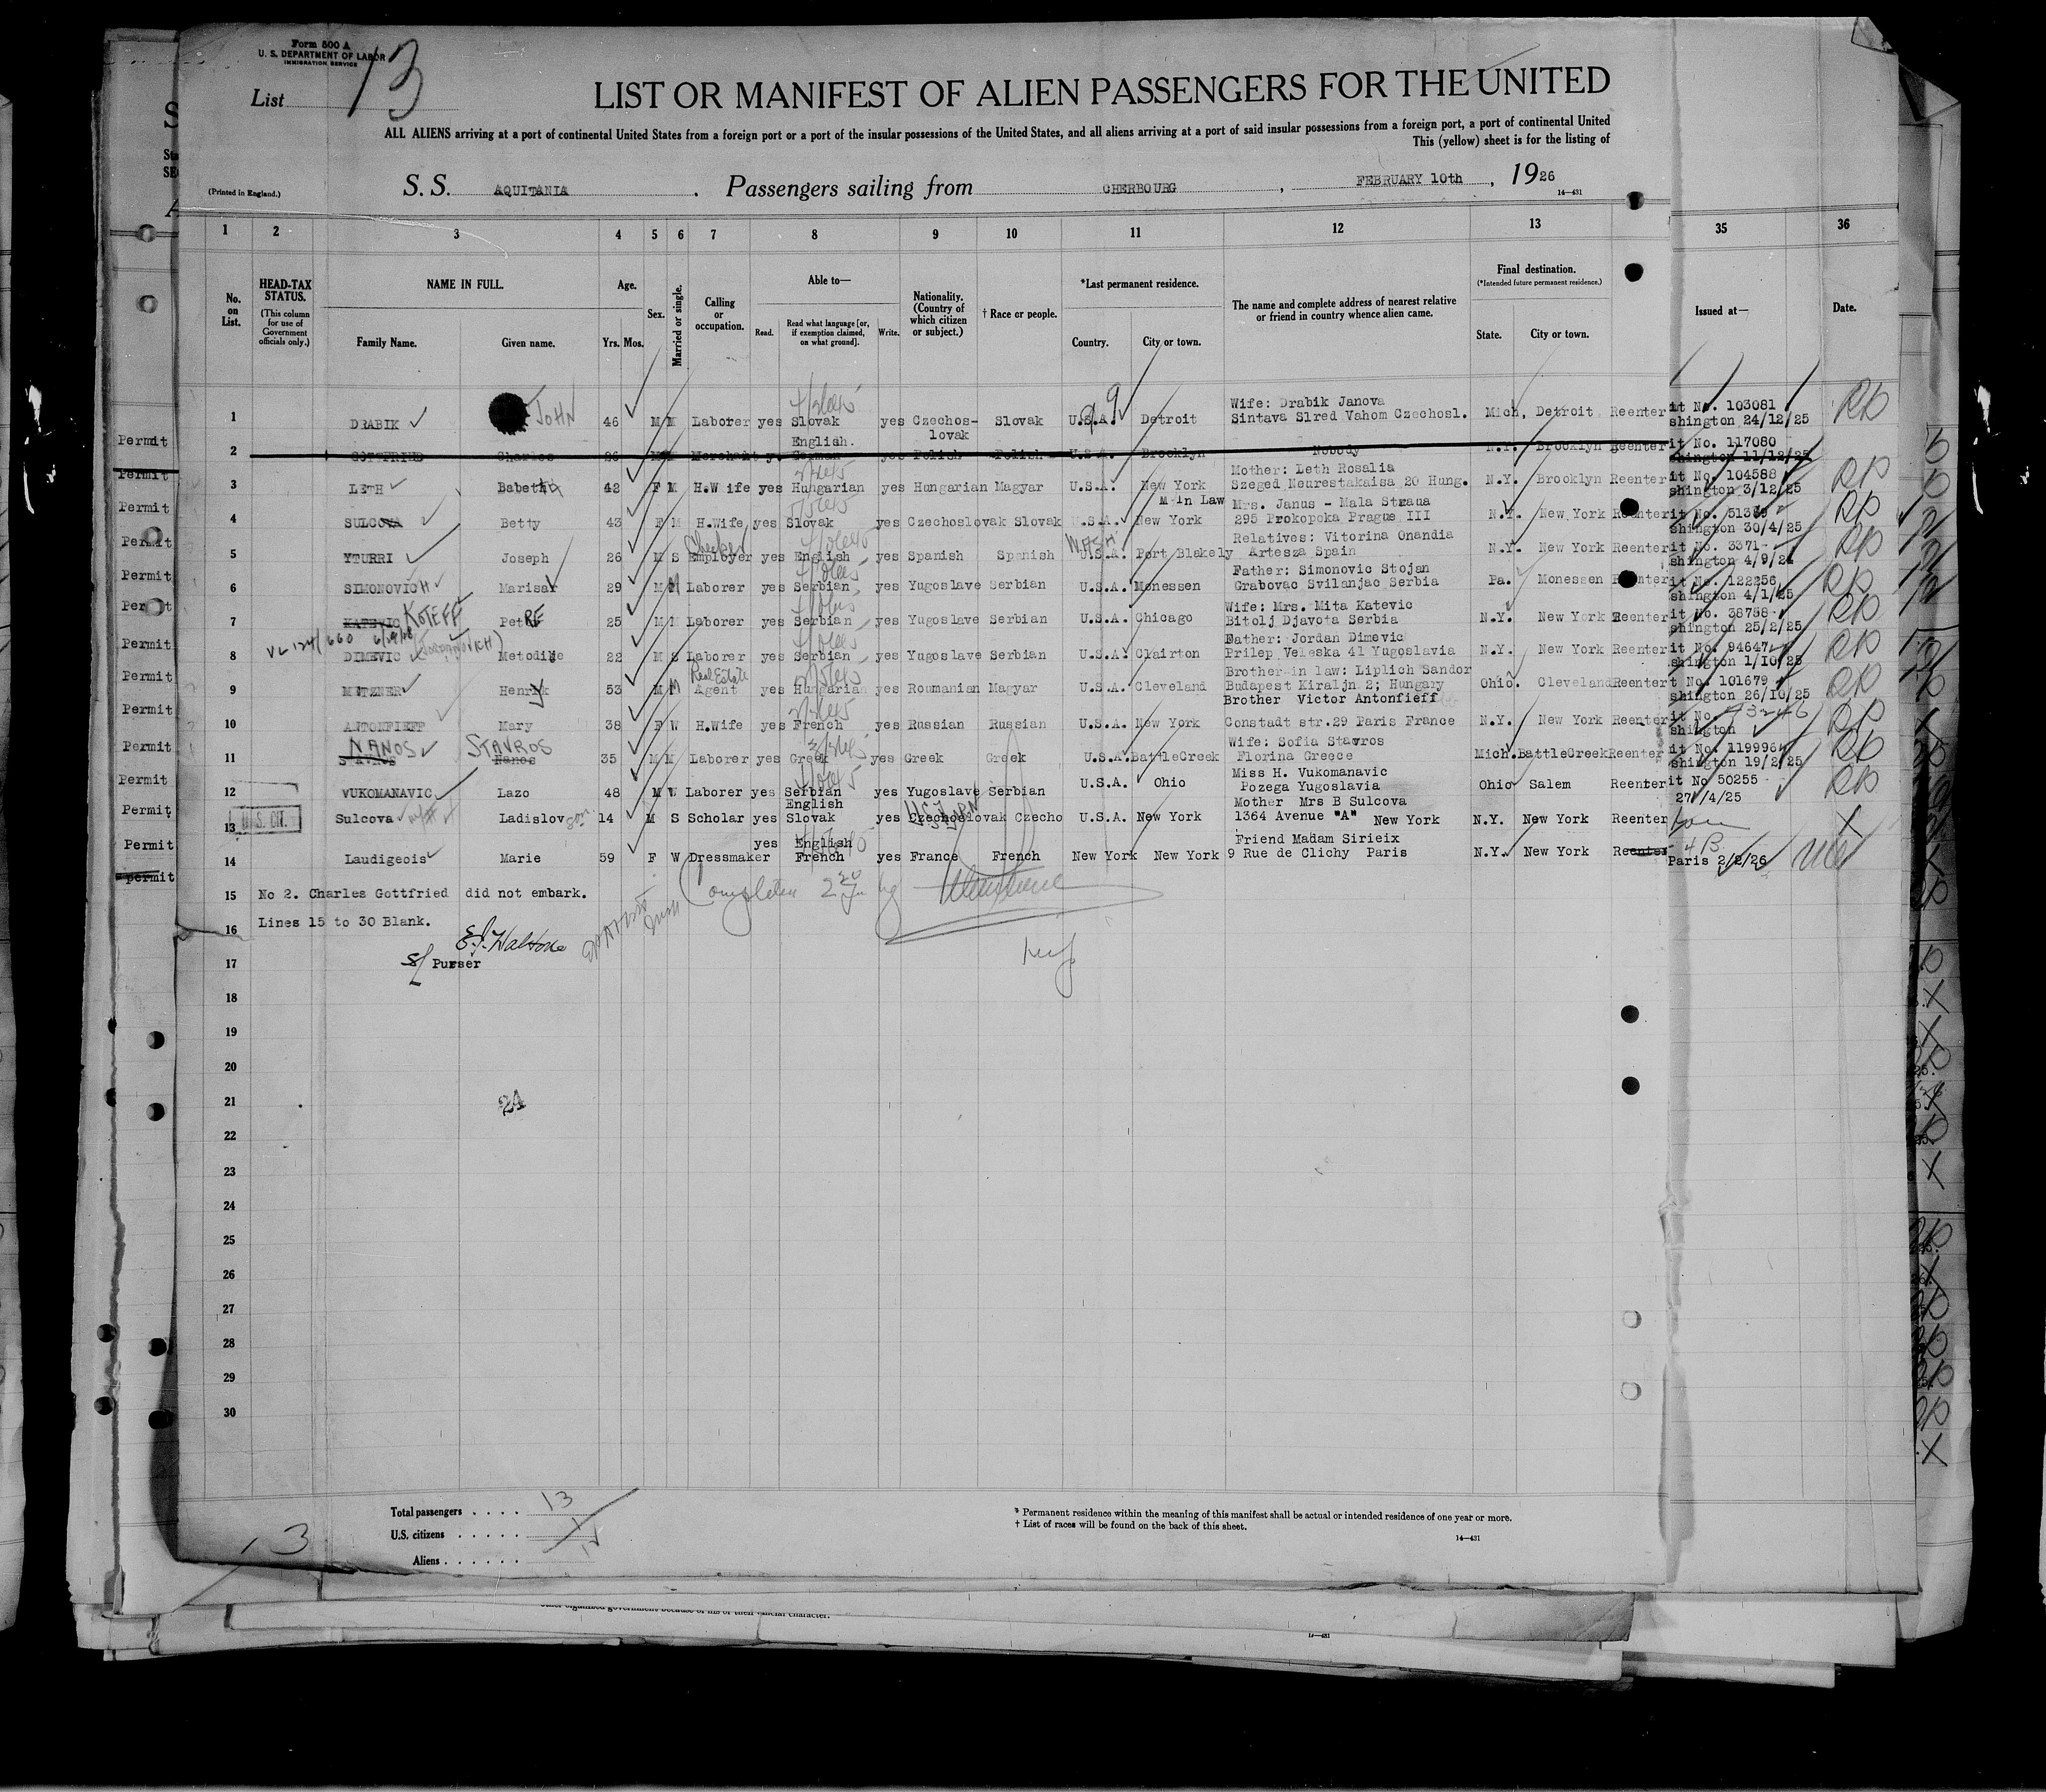 Form 500 A
U. S. DEPARTMENT OF LABOR
IMMIGRATION SERVICE
List 13
LIST OR MANIFEST OF ALIEN PASSENGERS FOR THE UNITED
ALL ALIENS arriving at a port of continental United States from a foreign port or a port of the insular possessions of the United States, and all aliens arriving at a port of said insular possessions from a foreign port, a port of continental United
This (yellow) sheet is for the listing of
(Printed in England.)
S. S. AQUITANIA . Passengers sailing from CHERBOURG , FEBRUARY 10th , 1926
14—431
1 2 3 4 5 6 7 8 9 10 11 12 13 35 36
No. on List.
HEAD-TAX STATUS.
(This column for use of Government officials only.)
NAME IN FULL.
Family Name. Given name.
Age.
Yrs. Mos.
Sex.
Married or single.
Calling or occupation.
Able to—
Read. Read what language [or, if exemption claimed, on what ground]. Write.
Nationality. (Country of which citizen or subject.)
† Race or people.
*Last permanent residence.
Country. City or town.
The name and complete address of nearest relative or friend in country whence alien came.
Final destination.
(*Intended future permanent residence.)
State. City or town.
Issued at—
Date.
Wife: Drabik Janova
1 DRABIK JOHN 46 M M Laborer yes Slovak yes Czechos-lovak Slovak U.S.A. Detroit Sintava Slred Vahom Czechosl. Mich, Detroit Reenter it No. 103081
shington 24/12/25
English.
2 GOTTFRIED Charles 26 M M Merchant y. German yes Polish Polish U.S.A. Brooklyn Nobody N.Y. Brooklyn Reenter it No. 117080
shington 11/12/25
Mother: Leth Rosalia
3 LETH Babett 42 F M H.Wife yes Hungarian yes Hungarian Magyar U.S.A. New York Szeged Neurestakaisa 20 Hung. N.Y. Brooklyn Reenter it No. 104588
shington 3/12/25
M In Law Mrs. Janus - Mala Straua
4 SULCOVA Betty 43 F M H.Wife yes Slovak yes Czechoslovak Slovak U.S.A. New York 295 Prokopoka Prague III N.Y. New York Reenter it No.
shington 30/4/25
Relatives: Vitorina Onandia
5 YTURRI Joseph 26 M S Employer yes English yes Spanish Spanish WASH U.S.A. Port Blakely Artesza Spain N.Y. New York Reenter it No. 3371
shington 4/9/24
Father: Simonovic Stojan
6 SIMONOVICH Marisav 29 M M Laborer yes Serbian yes Yugoslave Serbian U.S.A. Monessen Grabovac Svilanjac Serbia Pa. Monessen Reenter it No. 122256
shington 4/1/25
KOTEFF
Wife: Mrs. Mita Katevic
7 KATEVIC PetRE 25 M M Laborer yes Serbian yes Yugoslave Serbian U.S.A. Chicago Bitolj Djavota Serbia N.Y. New York Reenter it No. 38758
shington 25/2/25
Father: Jordan Dimevic
8 DIMEVIC Metodije 22 M S Laborer yes Serbian yes Yugoslave Serbian U.S.A. Clairton Prilep Veleska 41 Yugoslavia N.Y. New York Reenter it No. 94647
shington 1/10/25
Real Estate
Brother in law: Liplich Sandor
9 METZNER Henry 53 M M Agent yes Hungarian yes Roumanian Magyar U.S.A. Cleveland Budapest Kiraljn 2; Hungary Ohio. Cleveland Reenter it No. 101679
shington 26/10/25
Brother Victor Antonfieff
10 ANTONFIEFF Mary 38 F W H.Wife yes French yes Russian Russian U.S.A. New York Constadt str.29 Paris France N.Y. New York Reenter it No. 73246
shington
NANOS STAVROS
Wife: Sofia Stavros
11 STAVROS Nanos 35 M M Laborer yes Greek yes Greek Greek U.S.A. BattleCreek Florina Greece Mich. BattleCreek Reenter it No. 119996
shington 19/2/25
Miss H. Vukomanavic
12 VUKOMANAVIC Lazo 48 M W Laborer yes Serbian yes Yugoslave Serbian U.S.A. Ohio Pozega Yugoslavia Ohio Salem Reenter it No 50255
27/4/25
English
Mother Mrs B Sulcova
13 U.S. CIT. Sulcova Ladislov son 14 M S Scholar yes Slovak yes Czechoslovak Czecho U.S.A. New York 1364 Avenue "A" New York N.Y. New York Reenter
yes English
Friend Madam Sirieix
14 Laudigeois Marie 59 F W Dressmaker French yes France French New York New York 9 Rue de Clichy Paris N.Y. New York Reenter
Paris 2/2/26
15 No 2. Charles Gottfried did not embark.
16 Lines 15 to 30 Blank.
17 Purser
18
19
20
21 24
22
23
24
25
26
27
28
29
30
Permit
Permit
Permit
Permit
Permit
Permit
Permit
Permit
Permit
Permit
Permit
Permit
Permit
Permit
permit
Total passengers . . . . 13
U.S. citizens . . . . . 1
Aliens . . . . . .
13
* Permanent residence within the meaning of this manifest shall be actual or intended residence of one year or more.
† List of races will be found on the back of this sheet.
14—431